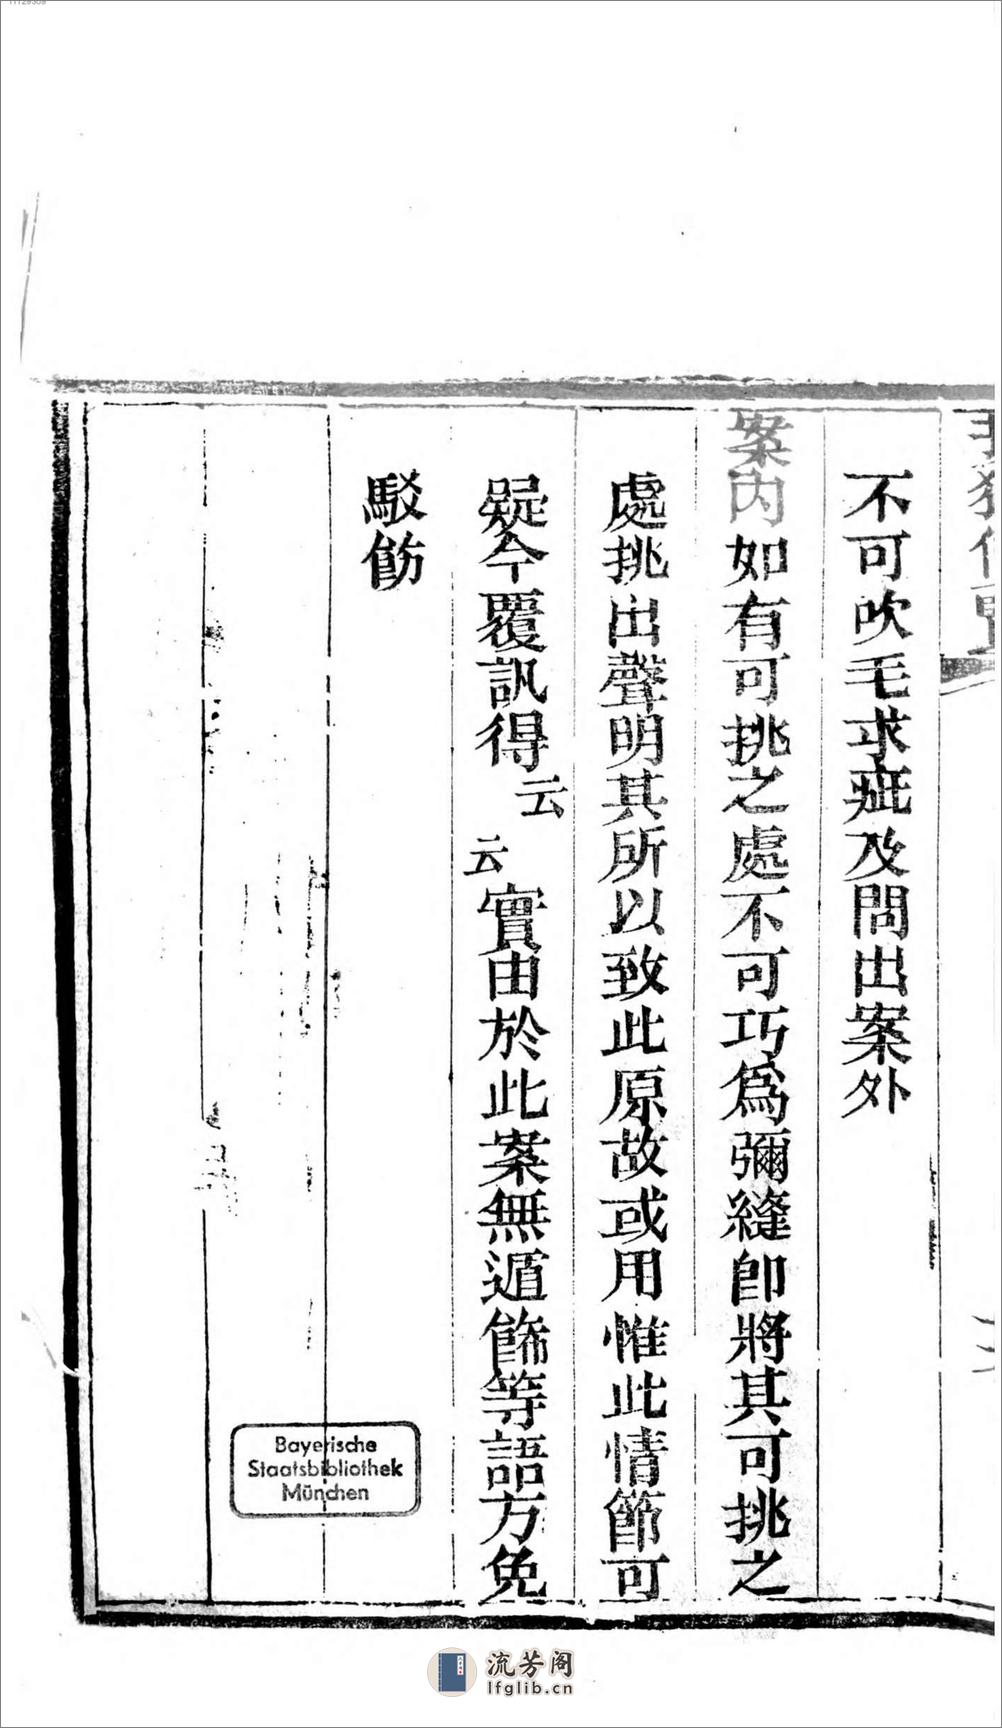 不可吹毛求疵及問出案外
案內如有可挑之處不可巧爲彌縫卽將其可挑之
處挑出聲明其所以致此原故或用惟此情節可
疑今覆訊得云云實由於此案無遁飾等語方免
駁飭
Bayerische
Staatsbibliothek
München
流芳阁
lfglib.cn